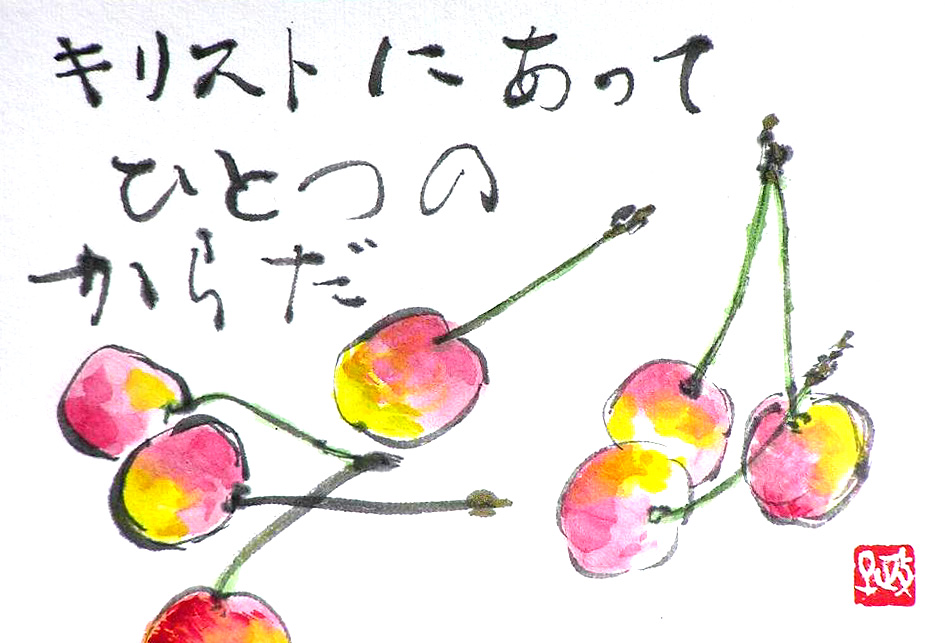 キリストにあって
ひとつの
からだ